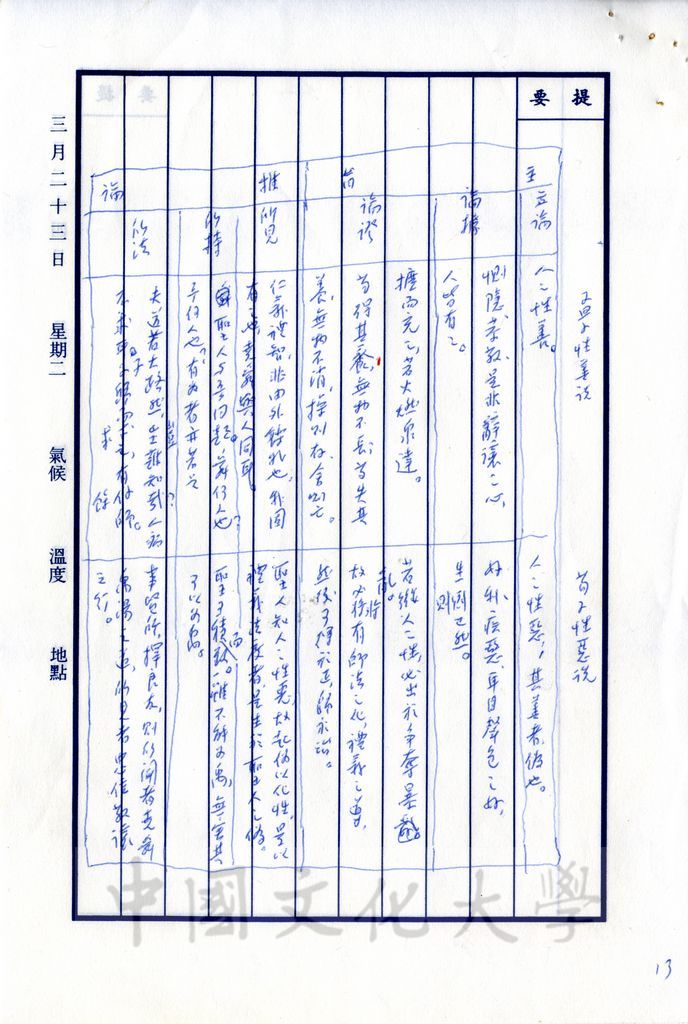 提要
三月二十三日 星期二 氣候 溫度 地點
孟子性善說
荀子性惡說
主
立論
人之性善。
人之性惡,其善者偽也。
論據
惻隱、羞敬、是非、辭讓之心,
人皆有之。
好利疾惡、耳目聲色之好,
生則已然。
論證
擴而充之,若火燃泉達。
苟得其養,無物不長;苟失其
養,無物不消,操則存,舍則亡。
若縱人之性,必出於爭奪暴亂。
故必將有師法之化,禮義之道,
然後可歸於治。
推
論
所見
仁義禮智,非由外鑠我也,我固
有之也,堯舜與人同耳。
聖人知人之性惡,故起偽以化性,是以
禮義法度者,是生於聖人之偽。
所持
聖人與我同類。舜何人也?
予何人也?有為者亦若是
聖可積而致。雖不能為禹,無害其
可以為禹。
所法
夫道若大路然,豈難知哉?人病
不求耳。子歸而求之,有餘師。
事賢師,擇良友,則所聞者堯舜
禹湯之道,所見者忠信敬讓
之行。
13
中國文化大學